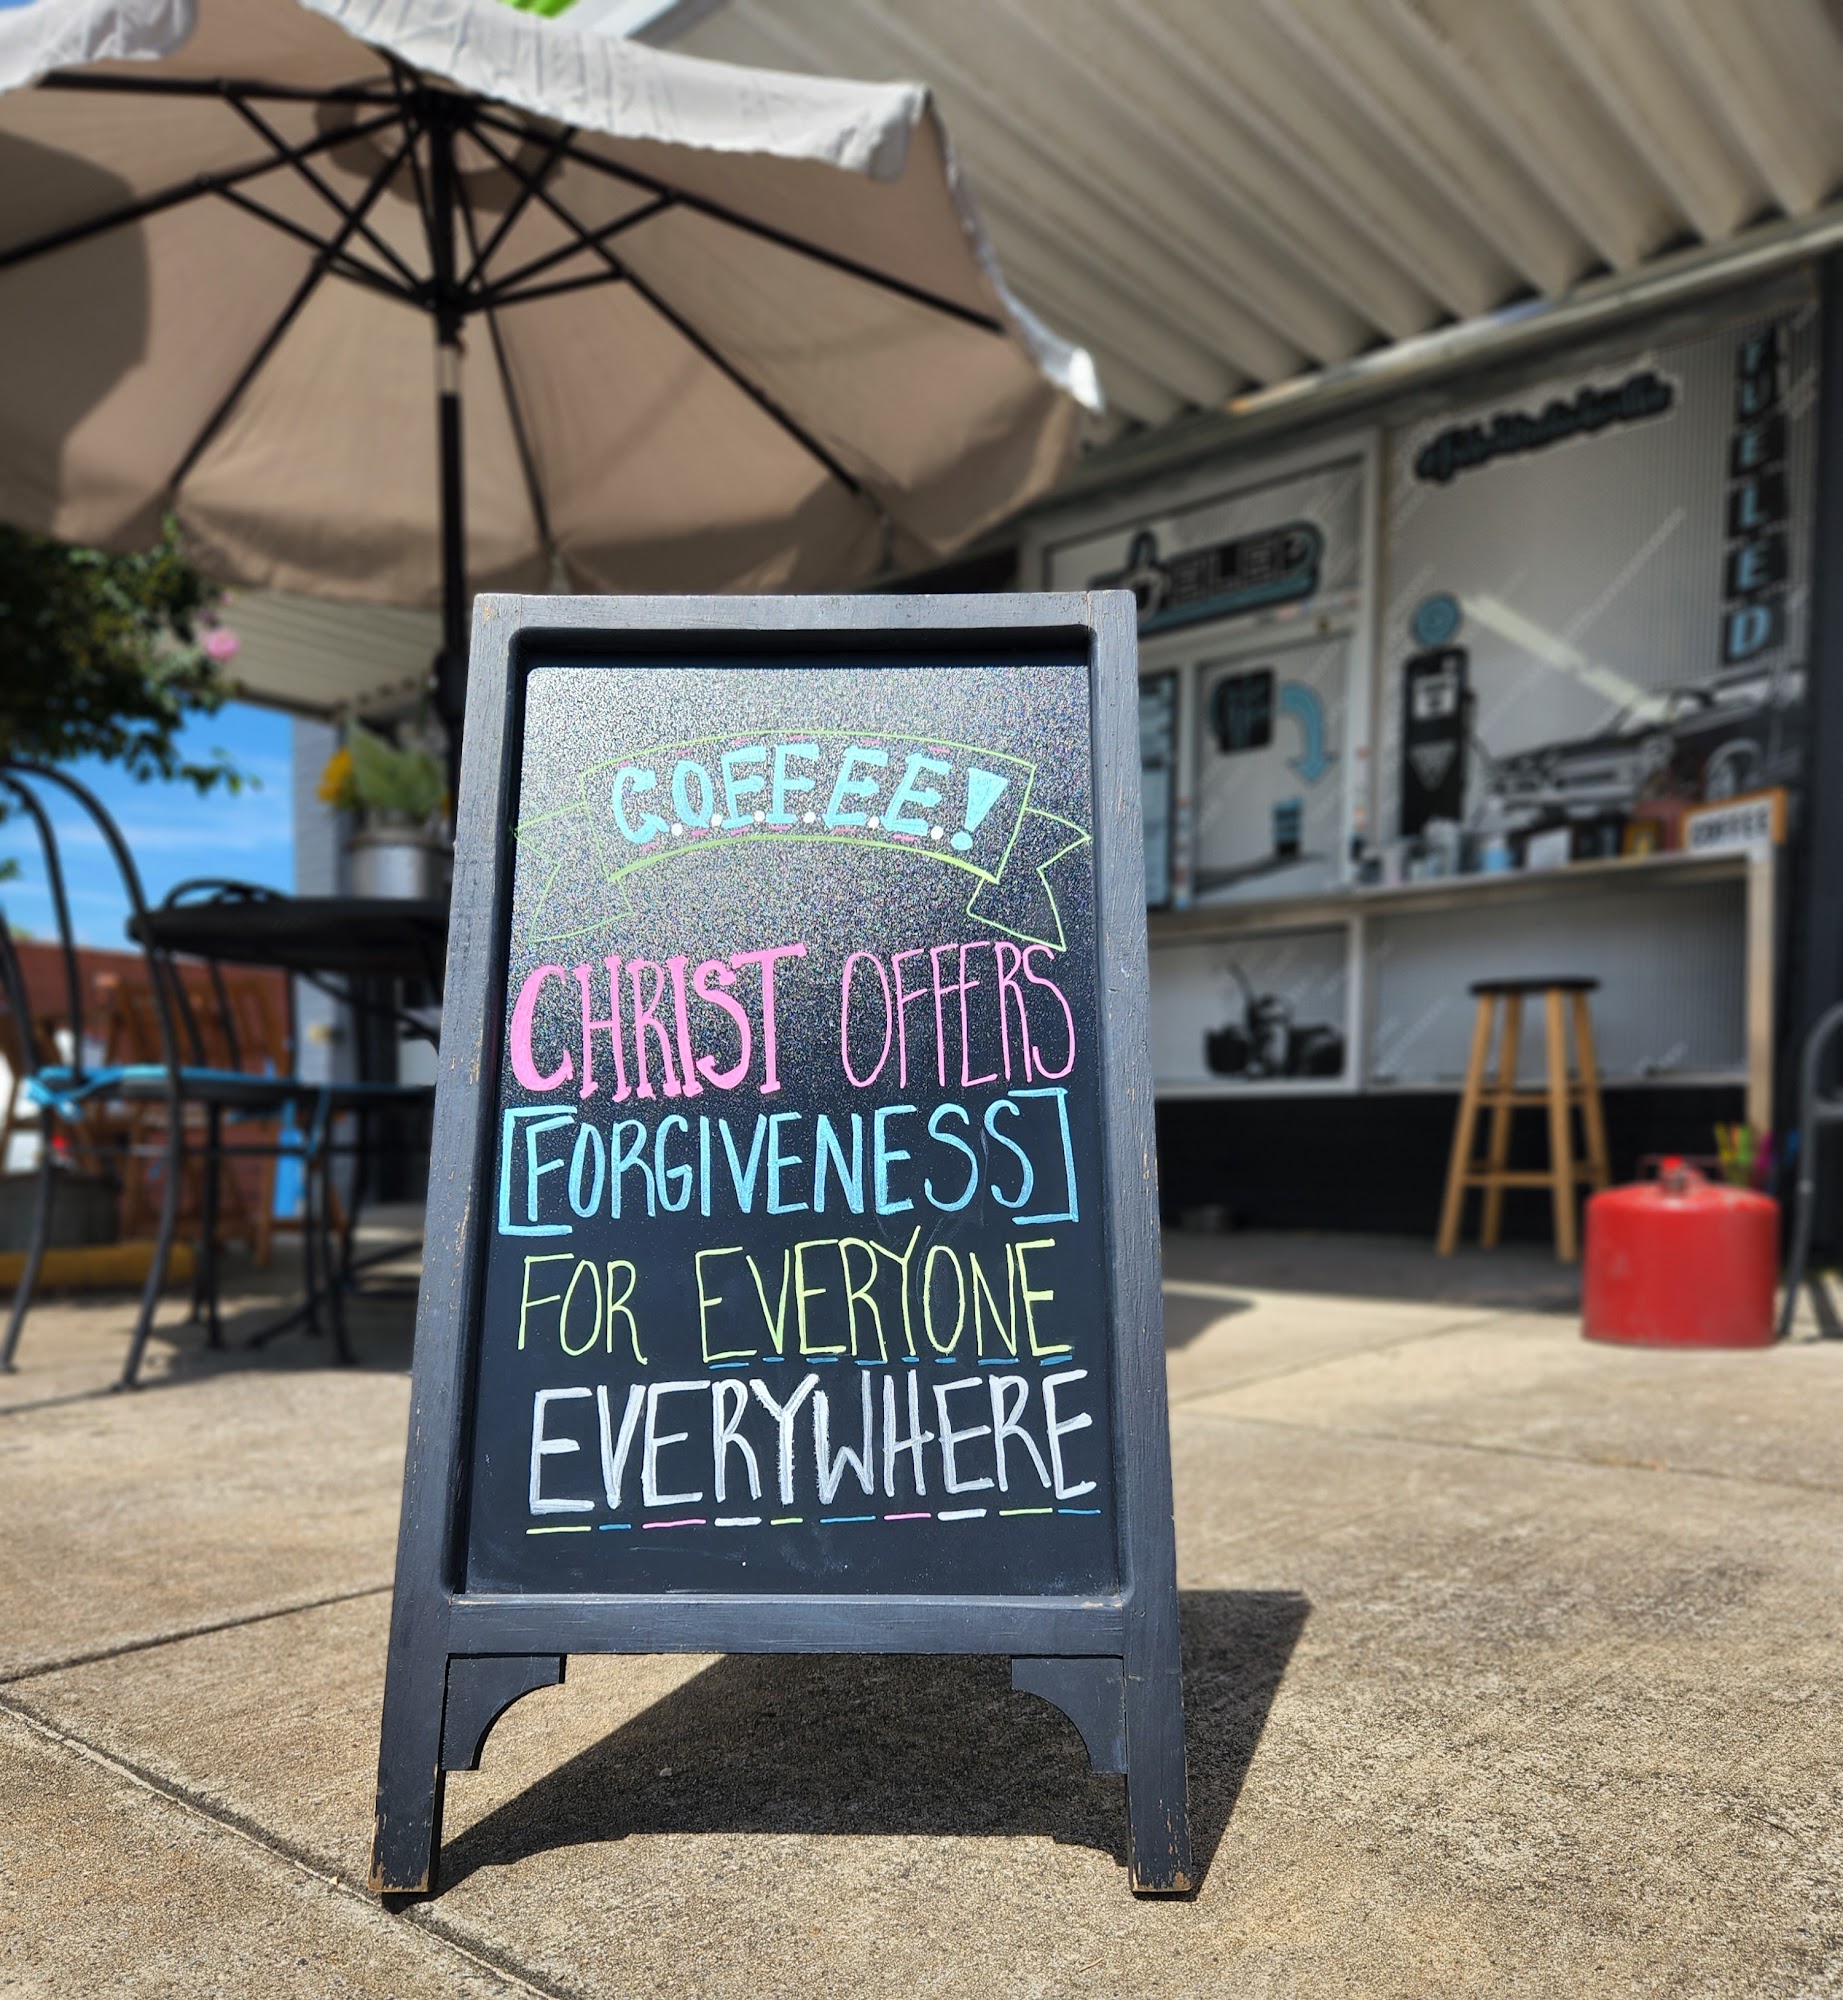 C.O.F.F.E.E!
CHRIST OFFERS
[FORGIVENESS]
FOR EVERYONE
EVERYWHERE
FUELED
FUELED
COFFEE